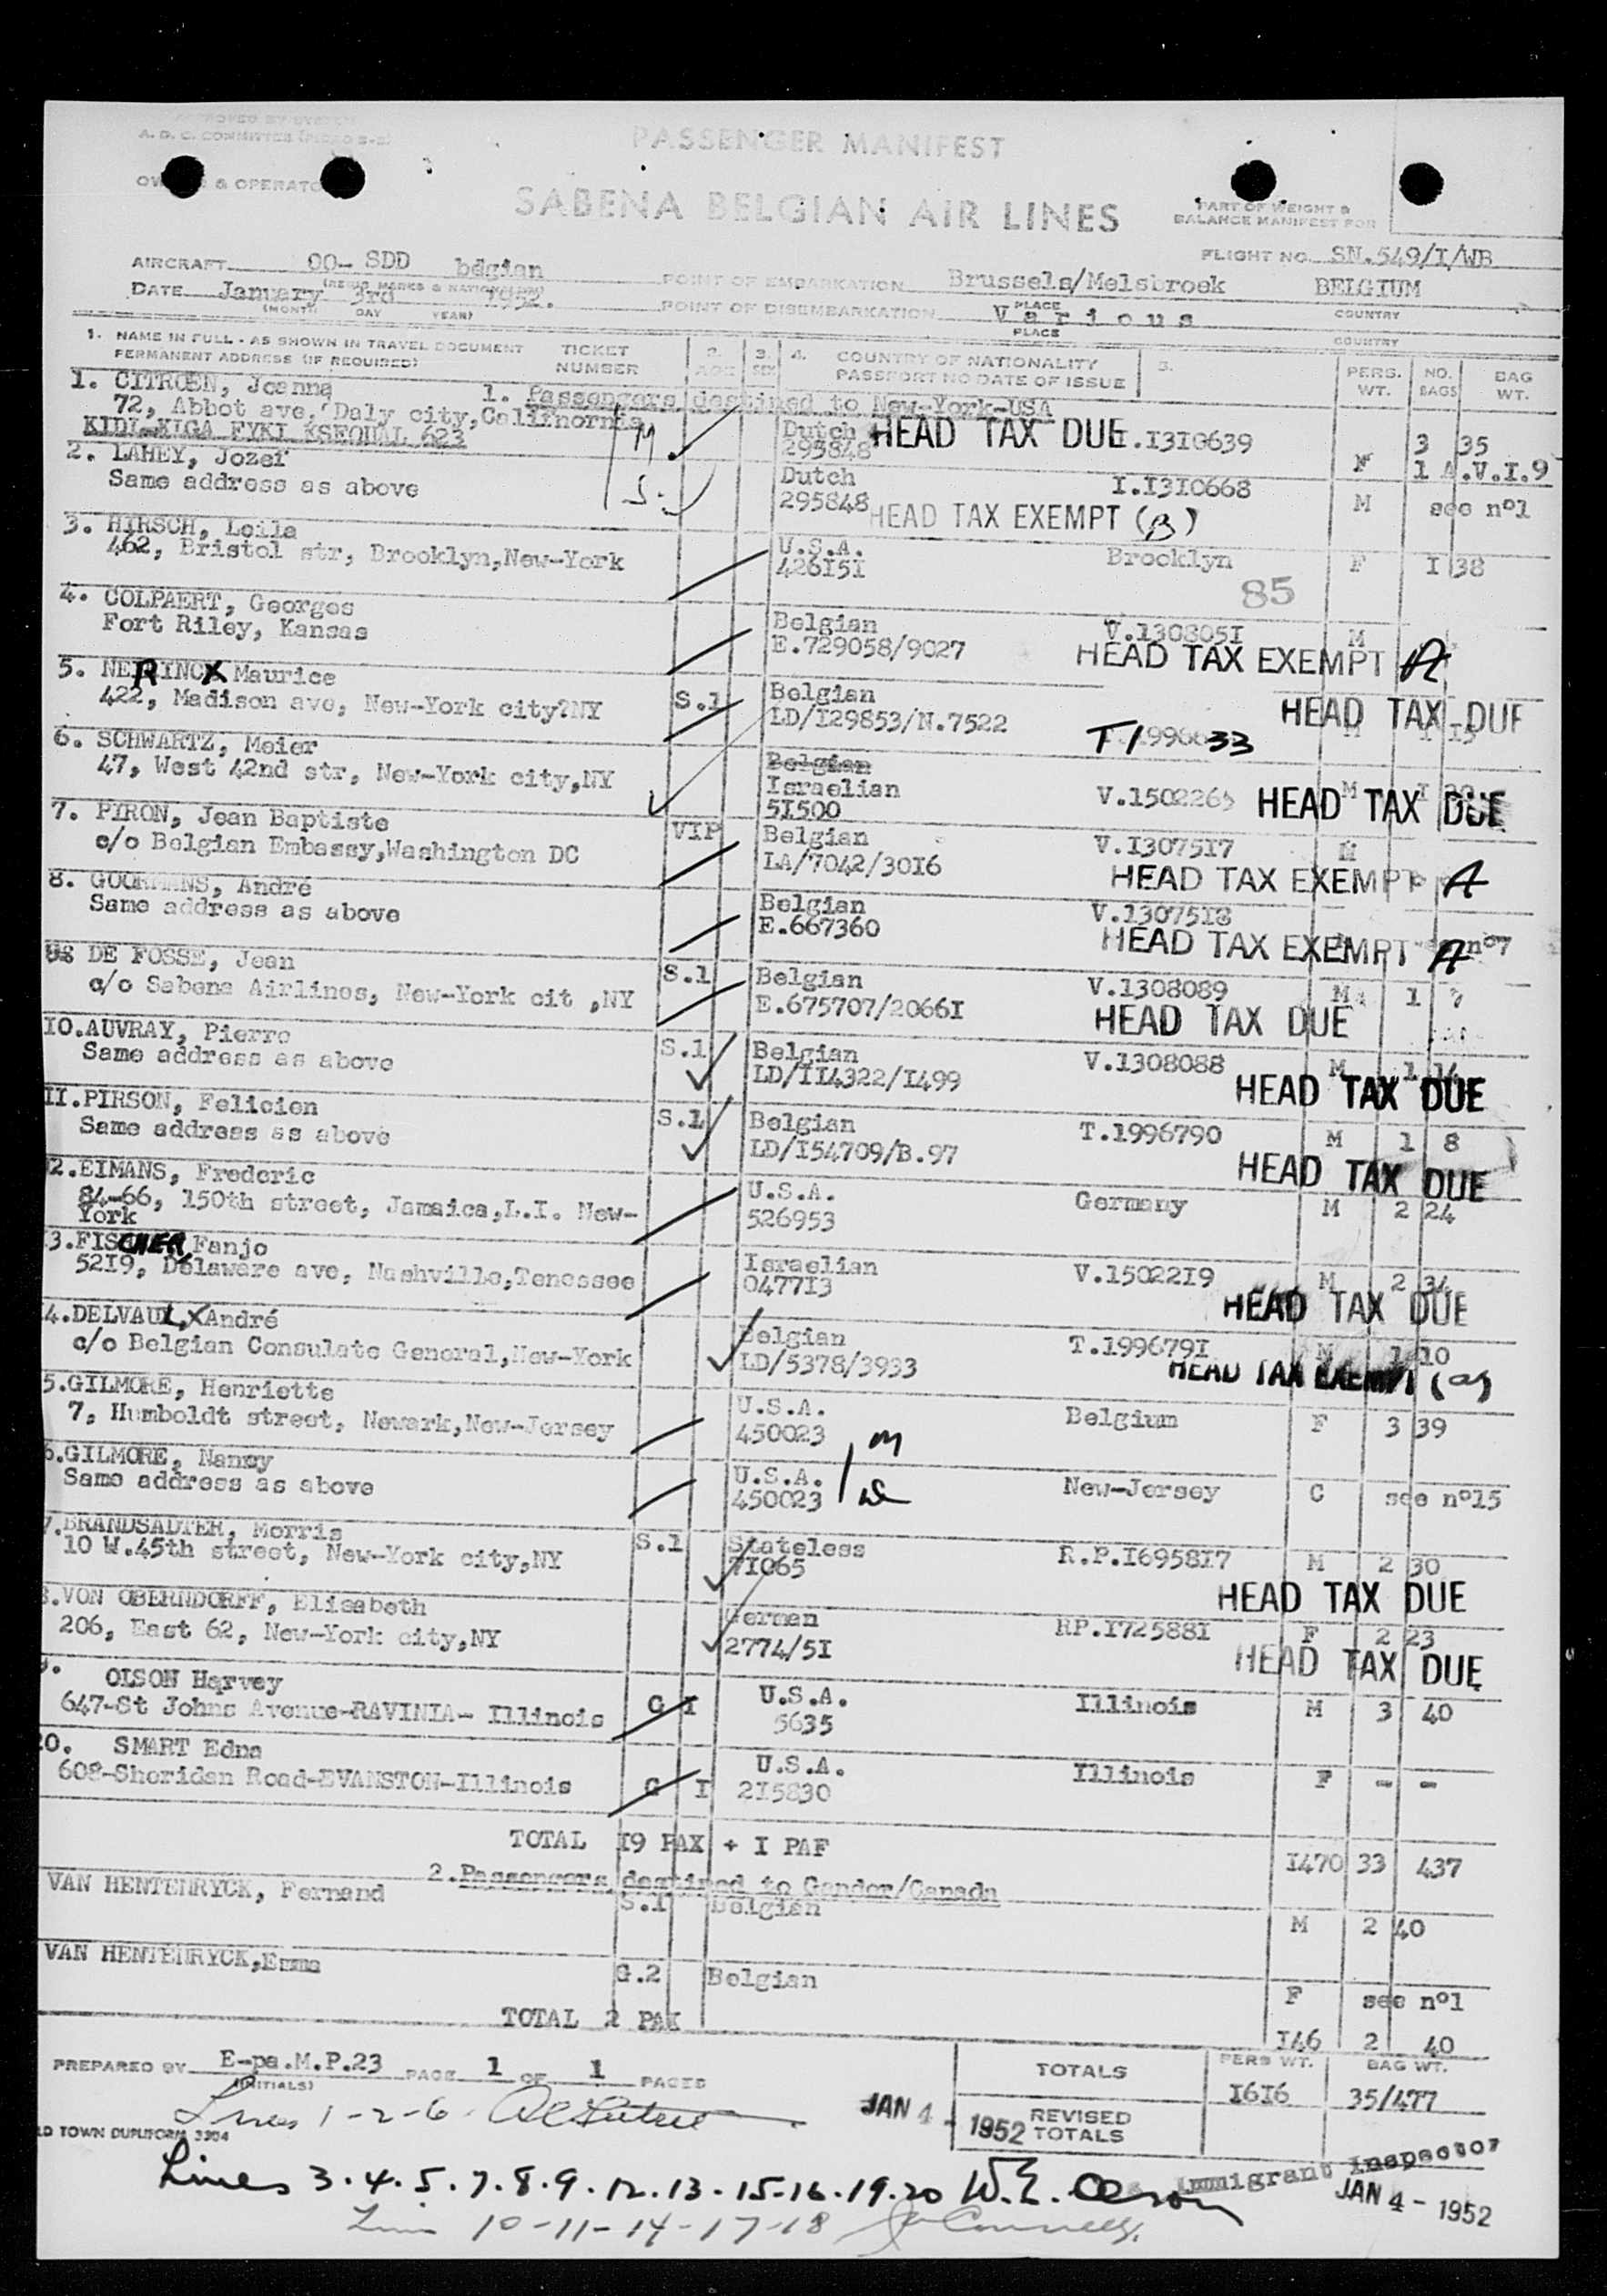 A. D. C. COMMITTEE
PASSENGER MANIFEST
& OPERATO
SABENA BELGIAN AIR LINES
PART OF WEIGHT &
BALANCE MANIFEST FOR
FLIGHT NO. SN.549/I/WB
AIRCRAFT OO- SDD belgian
POINT OF EMBARKATION Brussels/Melsbroek BELGIUM
DATE January 3rd 1952.
(MONTH) DAY YEAR)
PLACE COUNTRY
POINT OF DISEMBARKATION Various
PLACE COUNTRY
1. NAME IN FULL - AS SHOWN IN TRAVEL DOCUMENT
PERMANENT ADDRESS (IF REQUIRED)
TICKET NUMBER
2. AGE
3. SEX
4. COUNTRY OF NATIONALITY
PASSPORT NO DATE OF ISSUE
5.
PERS. WT.
NO. BAGS
BAG WT.
1. Passengers destined to New-York-USA
1. CITROEN, Joanna
72, Abbot ave, Daly city, Callinornia
KIDL-KIGA FYKI KSEQUAL 623
M
Dutch
295848
HEAD TAX DUE
I.I3I0639
3 35
F 1 A.V.I.9
2. LAHEY, Jozef
Same address as above
S.
Dutch
295848
I.I3I0668
M see nº1
HEAD TAX EXEMPT (B)
3. HIRSCH, Leila
462, Bristol str, Brooklyn,New-York
U.S.A.
426I5I
Brooklyn
F I 38
85
4. COLPAERT, Georges
Fort Riley, Kansas
Belgian
E.729058/9027
V.130805I
M
HEAD TAX EXEMPT A
5. NERINCX Maurice
422, Madison ave, New-York city?NY
S.1
Belgian
LD/I29853/N.7522
T1996033
HEAD TAX DUE
M 1 15
6. SCHWARTZ, Meier
47, West 42nd str, New-York city,NY
Belgian
Israelian
5I500
V.1502265
M I
HEAD TAX DUE
7. PIRON, Jean Baptiste
c/o Belgian Embassy,Washington DC
VIP
Belgian
LA/7042/30I6
V.I3075I7
M
HEAD TAX EXEMPT A
8. GOORMANS, André
Same address as above
Belgian
E.667360
V.13075I8
nº7
HEAD TAX EXEMPT A
98 DE FOSSE, Jean
c/o Sabena Airlines, New-York cit ,NY
S.1
Belgian
E.675707/2066I
V.1308089
M 1 7
HEAD TAX DUE
IO.AUVRAY, Pierre
Same address as above
S.1
Belgian
LD/II4322/I499
V.1308088
M 1 14
HEAD TAX DUE
II.PIRSON, Felicien
Same address as above
S.1
Belgian
LD/I54709/B.97
T.1996790
M 1 8
HEAD TAX DUE
2.EIMANS, Frederic
84-66, 150th street, Jamaica,L.I. New-
York
U.S.A.
526953
Germany
M 2 24
3.FISCHER, Fanjo
52I9, Delaware ave, Nashville,Tenessee
Israelian
0477I3
V.15022I9
M 2 34
HEAD TAX DUE
4.DELVAUX André
c/o Belgian Consulate General,New-York
Belgian
LD/5378/3933
T.199679I
M 1 10
HEAD TAX EXEMPT (a)
5.GILMORE, Henriette
7, Humboldt street, Newark,New-Jersey
U.S.A.
450023
Belgium
F 3 39
M
6.GILMORE, Nancy
Same address as above
U.S.A.
450023
New-Jersey
C see nº15
7.BRANDSADTER, Morris
10 W.45th street, New-York city,NY
S.1
Stateless
7I065
R.P.I6958I7
M 2 30
HEAD TAX DUE
8.VON OBERNDORFF, Elisabeth
206, East 62, New-York city,NY
German
2774/5I
RP.I72588I
F 2 23
HEAD TAX DUE
9. OLSON Harvey
647-St Johns Avenue-RAVINIA- Illinois
G I
U.S.A.
5635
Illinois
M 3 40
0. SMART Edna
608-Sheridan Road-EVANSTON-Illinois
G I
U.S.A.
2I5830
Illinois
F - -
TOTAL I9 PAX + I PAF
I470 33 437
2.Passengers destined to Gander/Canada
VAN HENTENRYCK, Fernand
S.1 Belgian
M 2 40
VAN HENTENRYCK,Emma
G.2 Belgian
F see nº1
TOTAL 2 PAX
I46 2 40
PREPARED BY E-pa.M.P.23 PAGE 1 OF 1 PAGES
(INITIALS)
TOTALS
PERS WT.
I6I6
BAG WT.
35/477
Lines 1-2-6
JAN 4 - 1952
REVISED TOTALS
LD TOWN DUPLIFORM 3304
Lines 3.4.5.7.8.9.12.13.15-16.19.20 W.E. Olson
Immigrant Inspector
JAN 4 - 1952
Lin 10-11-14-17-18